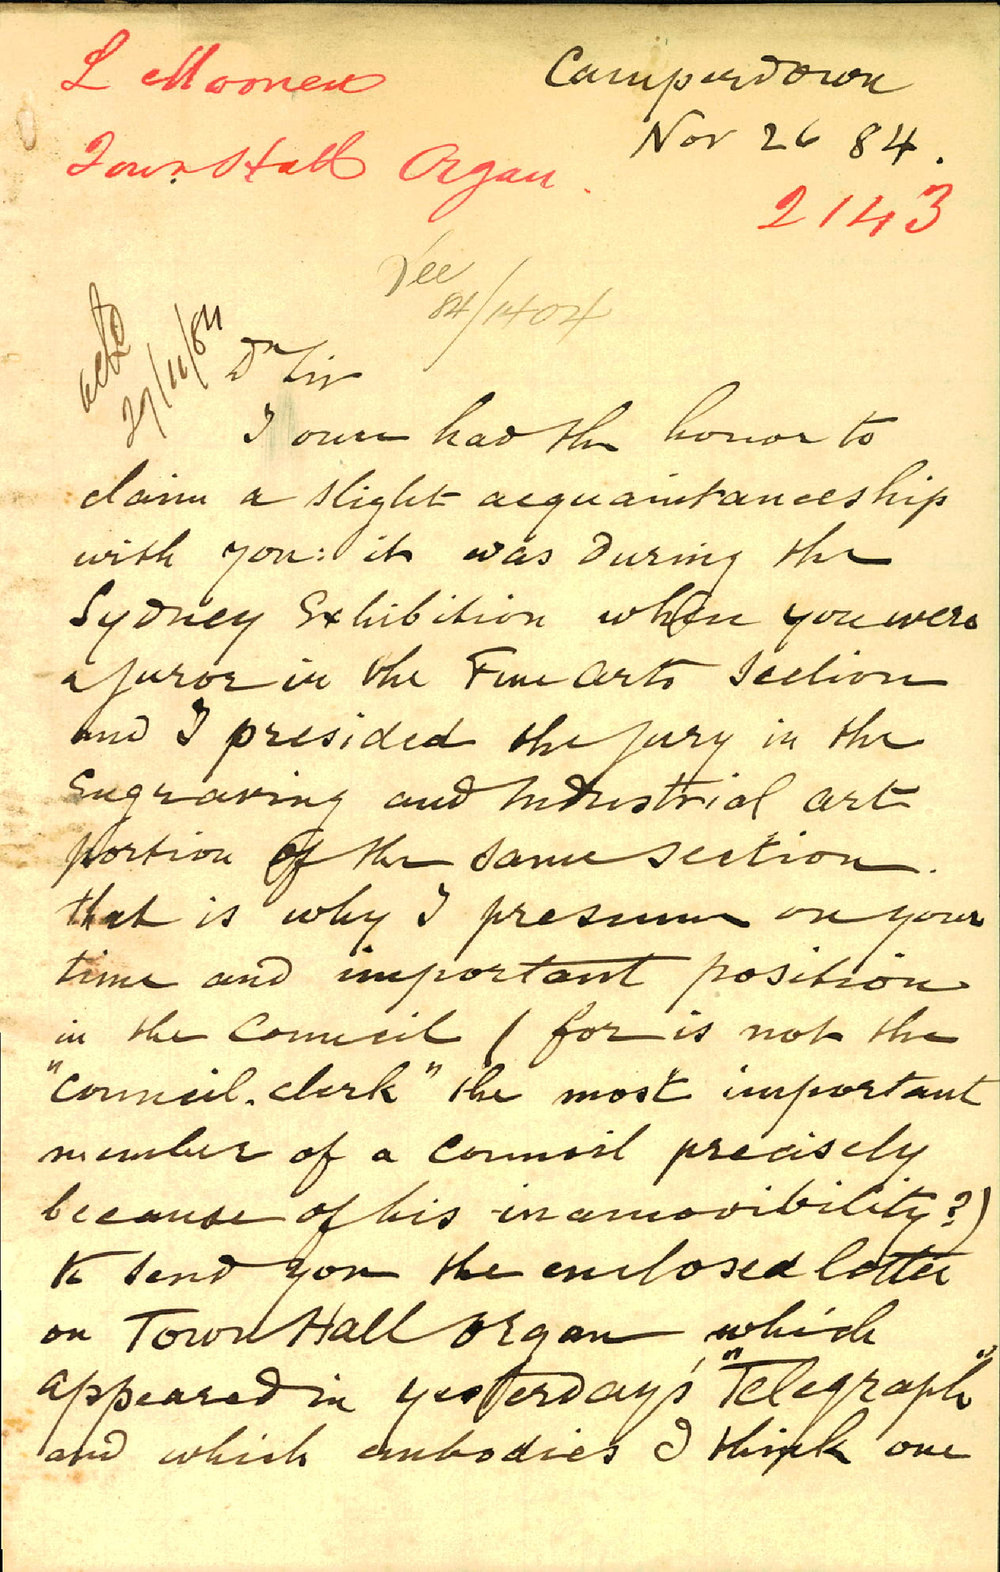 L Moonen
Camperdown
Town Hall Organ.
Nov 26 84.
2143
See
84/1404
ackd
29/11/84
Dr Sir
I once had the honor to
claim a slight acquaintanceship
with you: it was during the
Sydney Exhibition when you were
a juror in the Fine Arts Section
and I presided the jury in the
Engraving and Industrial art
portion of the same section.
that is why I presume on your
time and important position
in the Council (for is not the
"Council-clerk" the most important
member of a Council precisely
because of his inamovibility?)
to send you the enclosed letter
on Town Hall Organ which
appeared in yesterday's "Telegraph"
and which embodies I think one